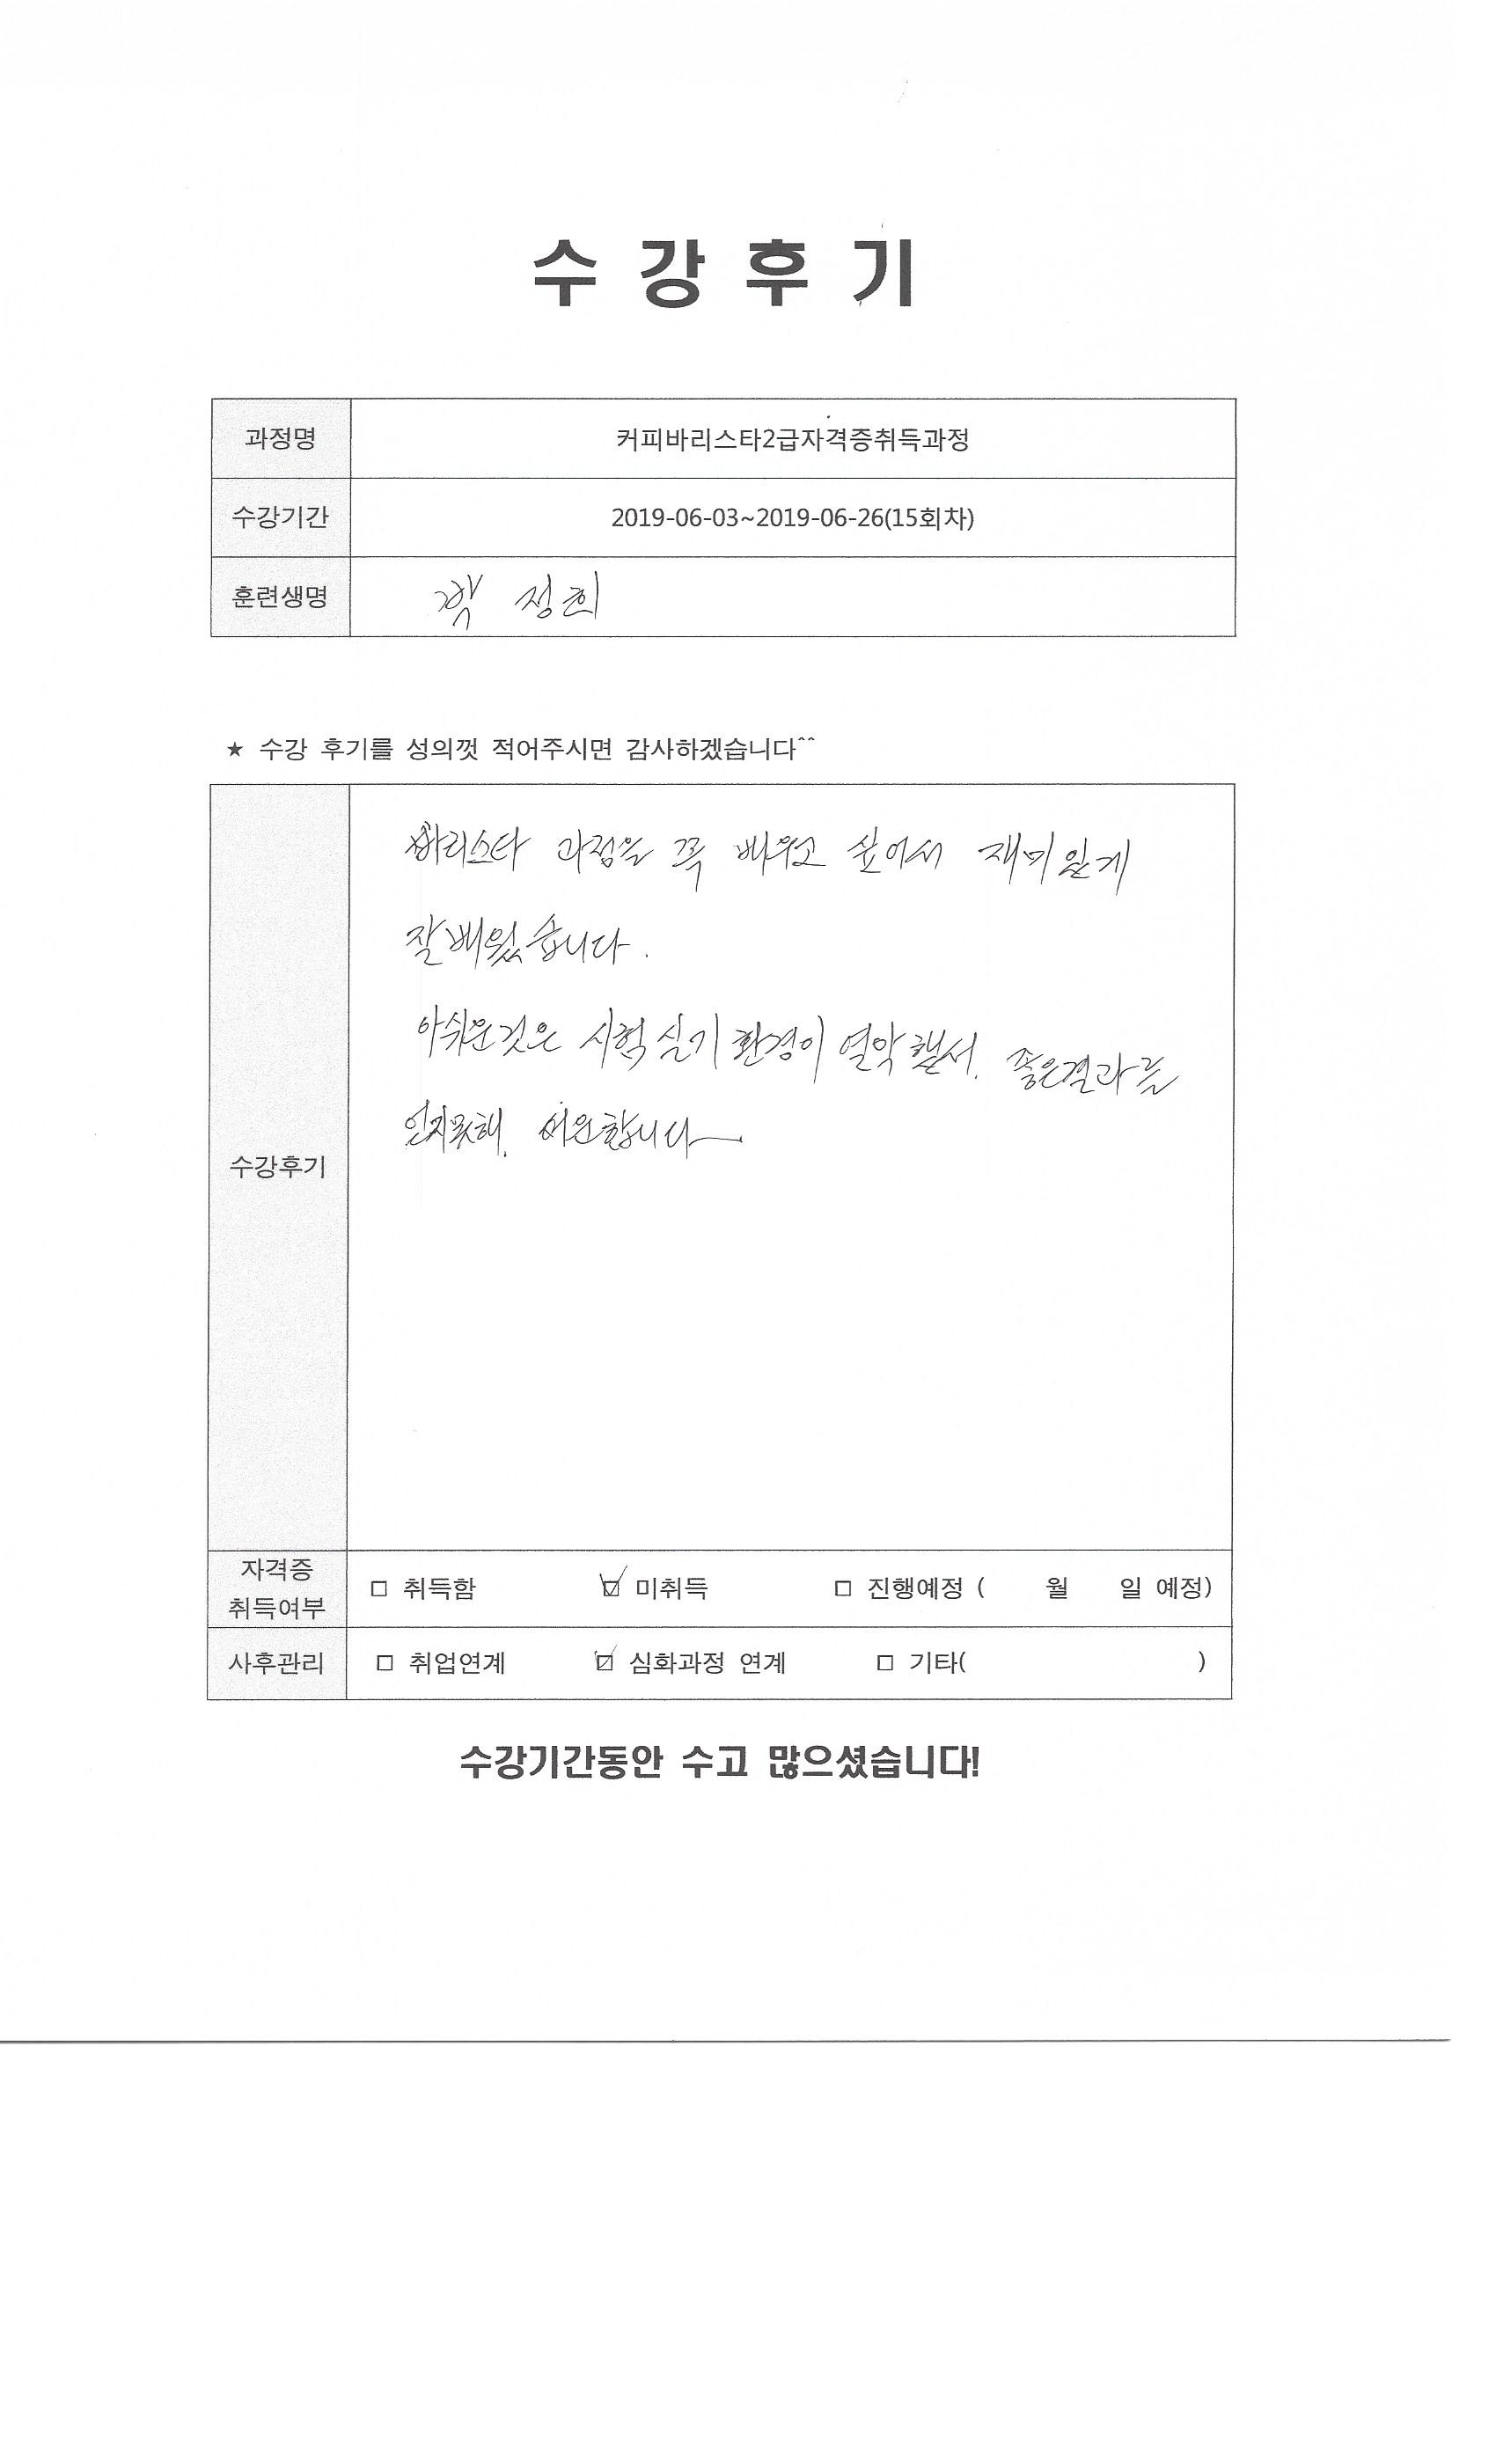 수 강 후 기
과정명 커피바리스타2급자격증취득과정
수강기간 2019-06-03~2019-06-26(15회차)
훈련생명 정희
★ 수강 후기를 성의껏 적어주시면 감사하겠습니다^^
수강후기
바리스타 과정을 꼭 배우고 싶어서 재미있게
잘배웠습니다.
아쉬운것은 시험실기환경이 열악해서. 좋은결과를
얻지못해. 서운합니다
자격증
취득여부
□ 취득함 ☑ 미취득 □ 진행예정 ( 월 일 예정)
사후관리 □ 취업연계 ☑ 심화과정 연계 □ 기타( )
수강기간동안 수고 많으셨습니다!